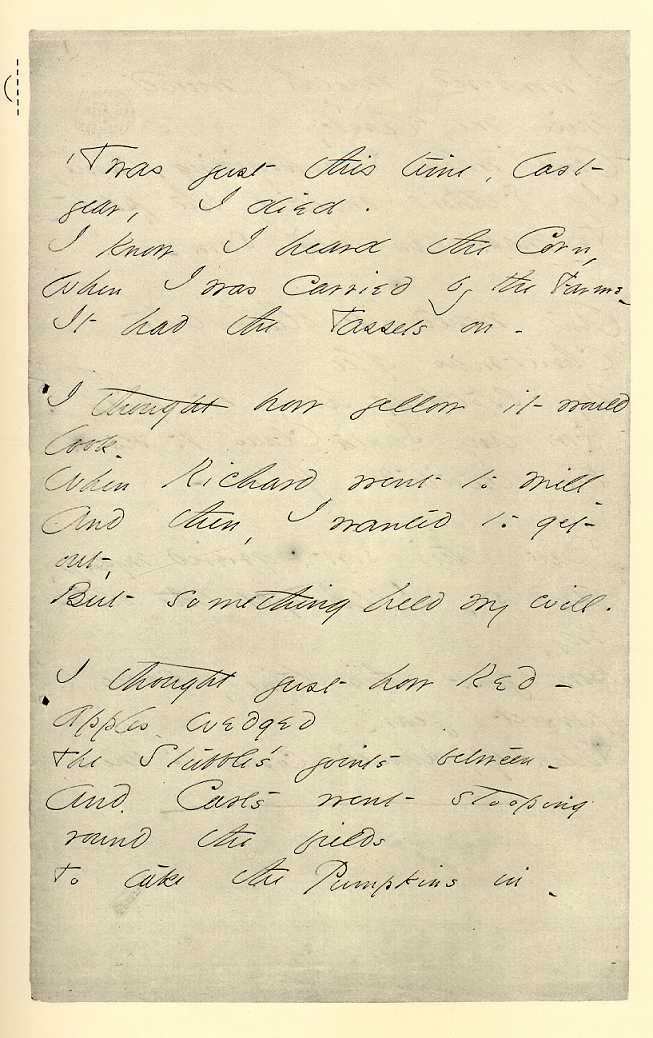 'Twas just this time, last
year, I died.
I know I heard the Corn,
When I was carried by the Farms –
It had the Tassels on –
I thought how yellow it would
look –
When Richard went to mill –
And then, I wanted to get
out,
But something held my will.
I thought just how Red –
Apples wedged
The Stubble's joints between –
And Carts went stooping
round the fields
To take the Pumpkins in –